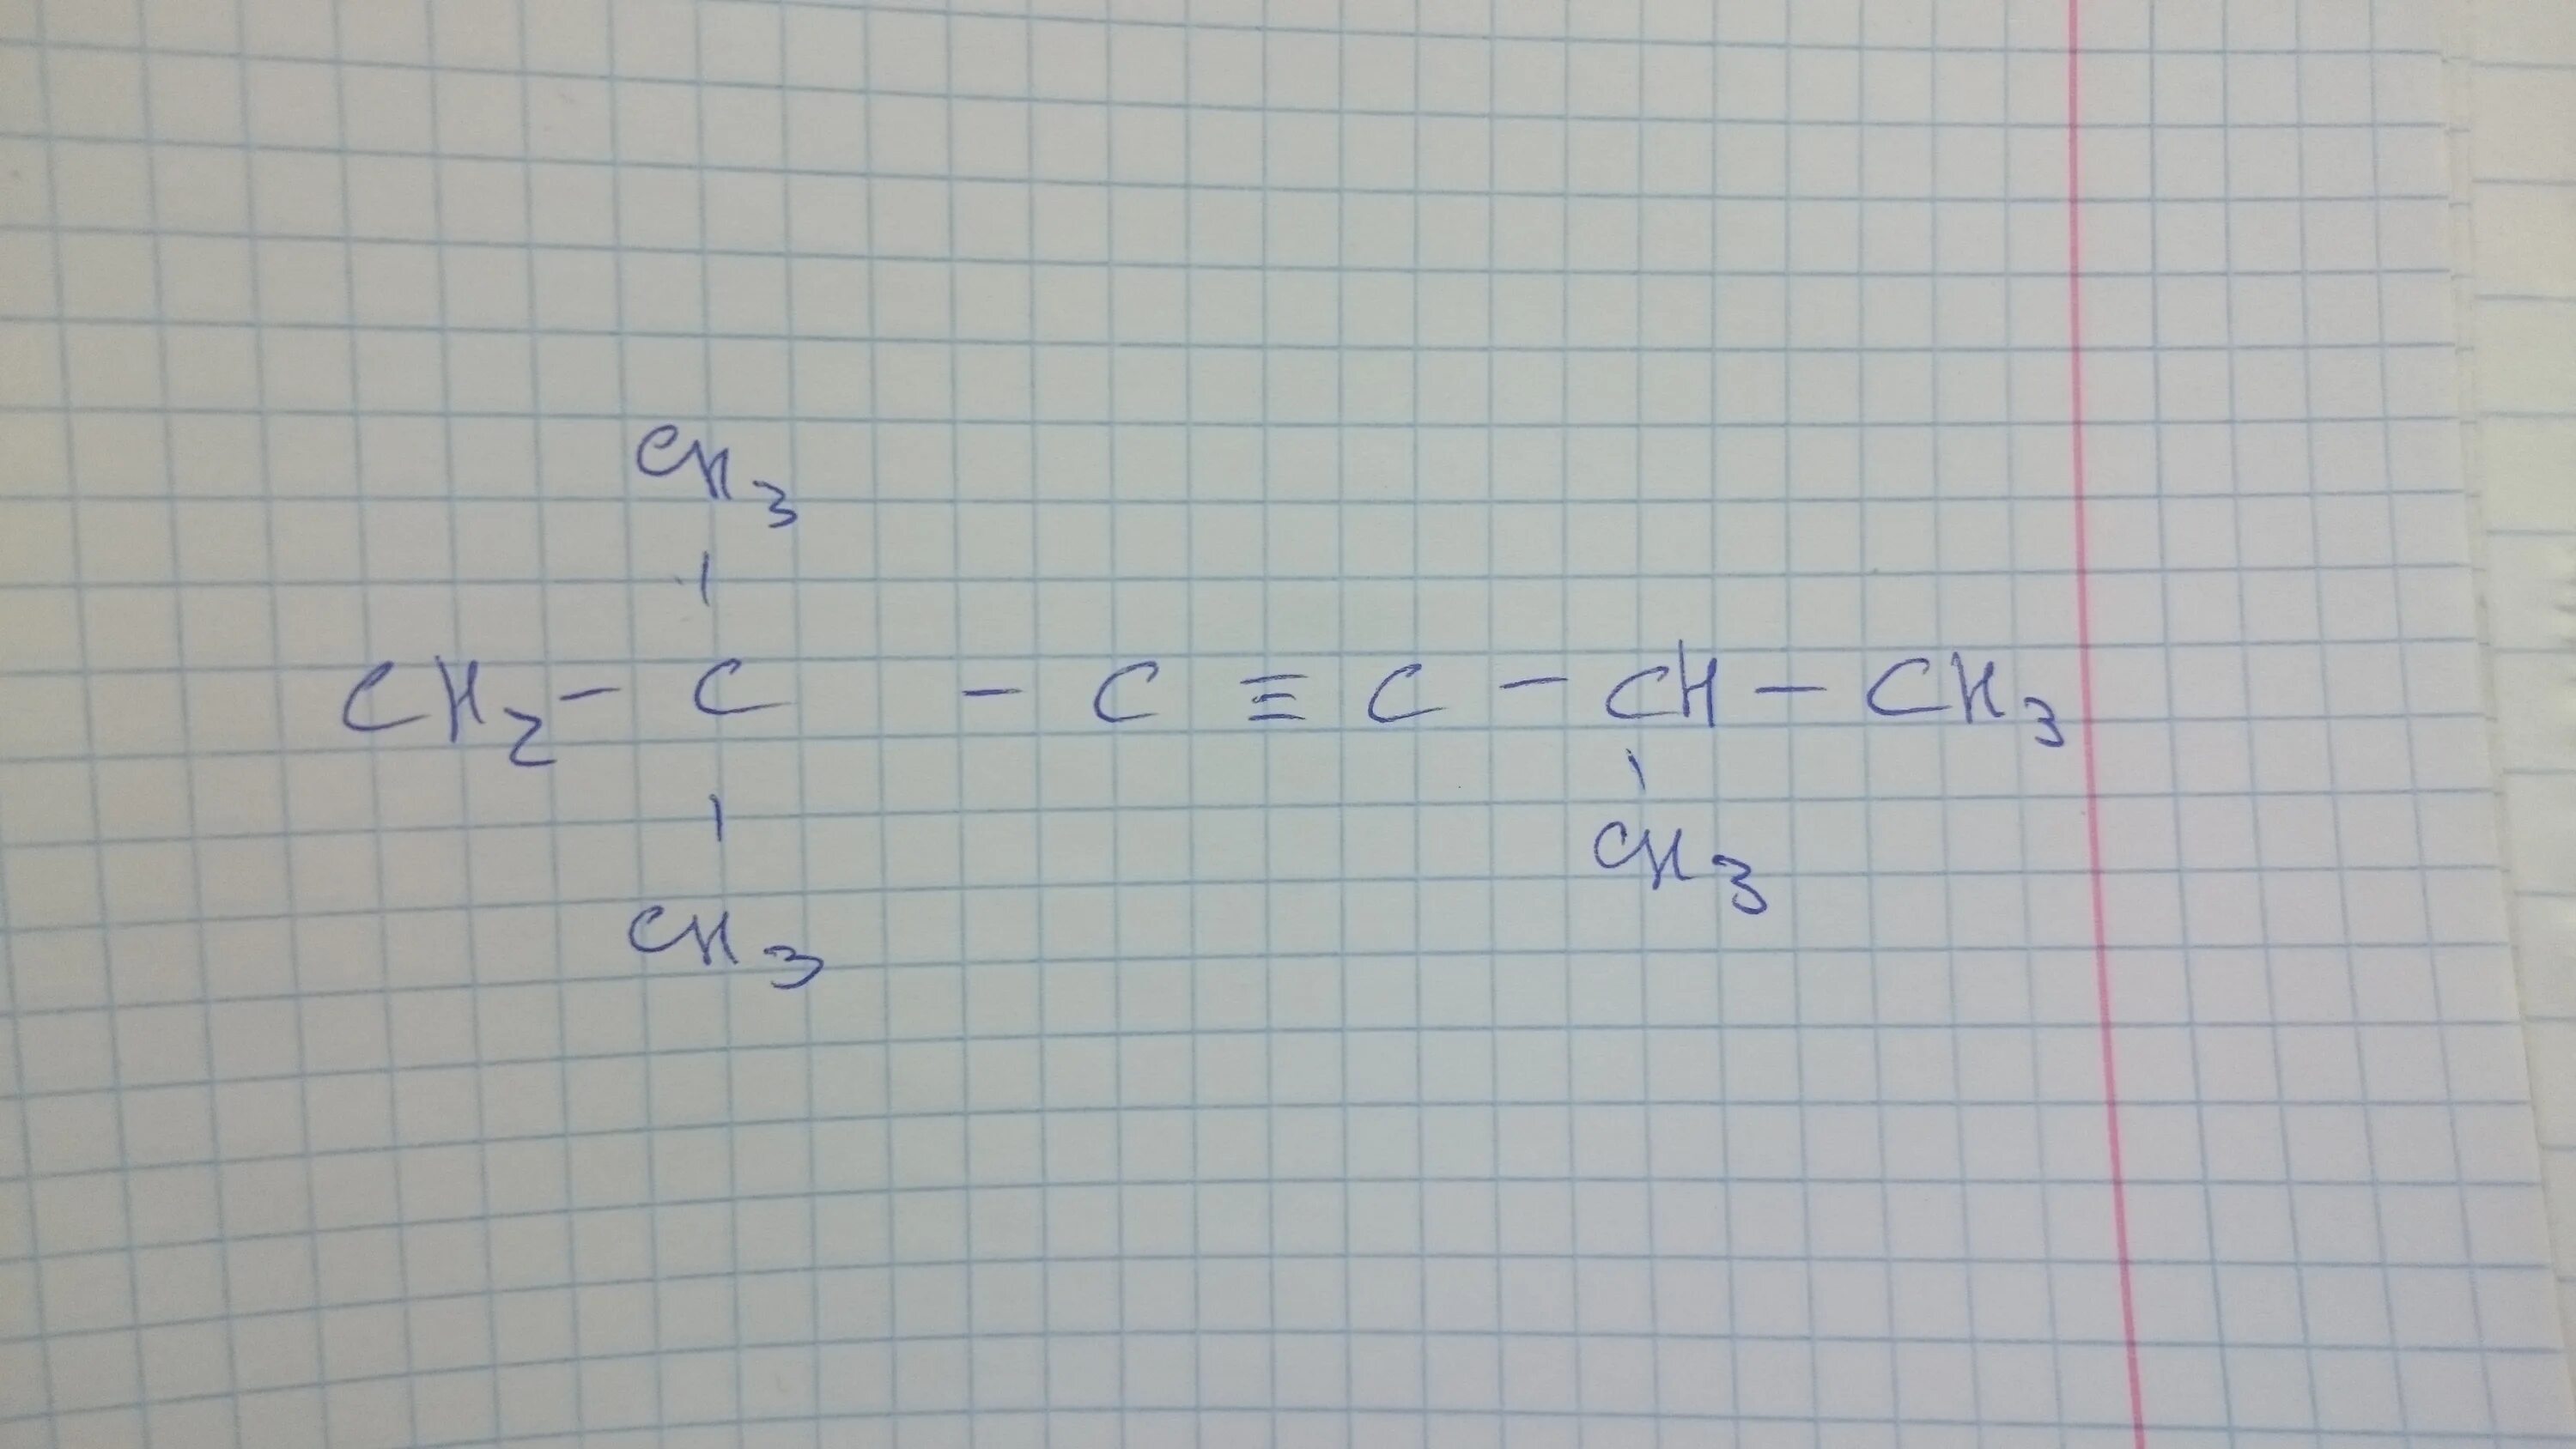 CH3
CH2 - C - C ≡ C - CH - CH3
CH3
CH3